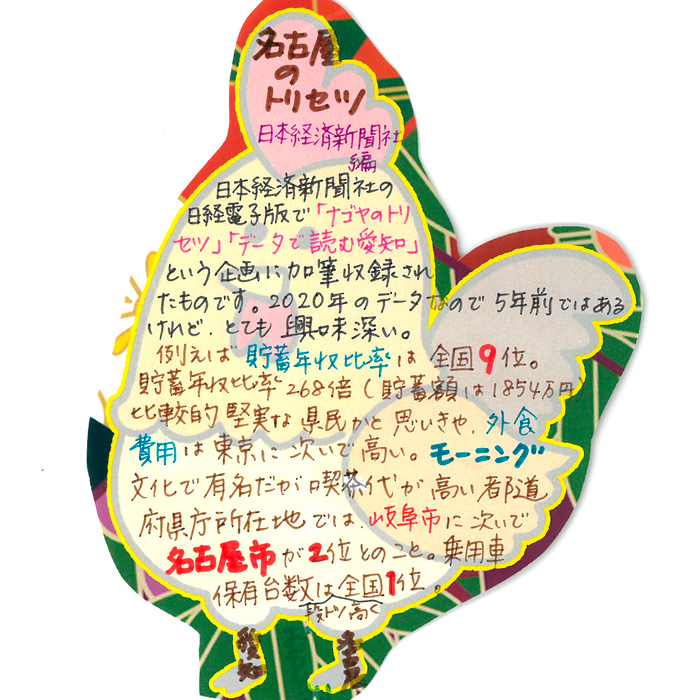 名古屋
の
トリセツ
日本経済新聞社
編
日本経済新聞社の
日経電子版で「ナゴヤのトリ
セツ」「データで読む愛知」
という企画に加筆収録され
たものです。2020年のデータなので5年前ではある
けれど、とても興味深い。
例えば貯蓄年収比率は全国9位。
貯蓄年収比率268倍(貯蓄額は1854万円)
比較的堅実な県民かと思いきや、外食
費用は東京に次いで高い。モーニング
文化で有名だが喫茶代が高い都道
府県庁所在地では、岐阜市に次いで
名古屋市が2位とのこと。乗用車
保有台数は全国1位。
段トツ高く
愛知